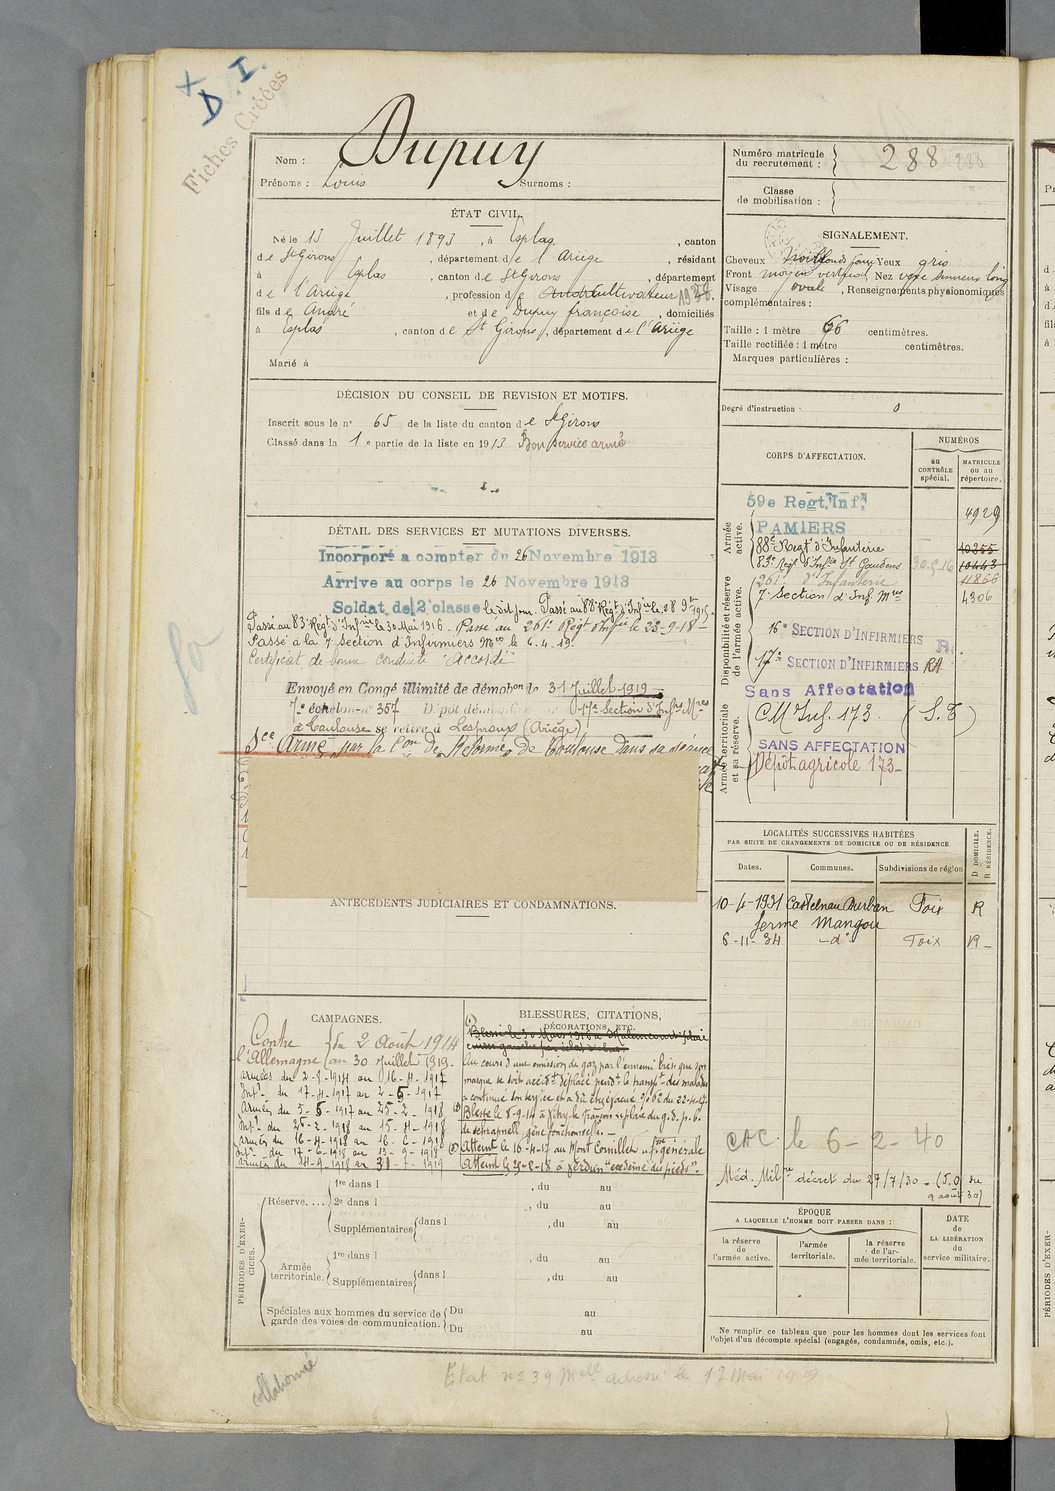 X D. I.
Fiches Créées
Nom : Dupuy
Prénoms : Louis Surnoms :
Numéro matricule du recrutement : 288 288
Classe de mobilisation :
ÉTAT CIVIL.
Né le 13 Juillet 1893, à Esplas, canton
de St Girons, département de l'Ariège, résidant
à Esplas, canton de St Girons, département
de l'Ariège, profession de cultivateur
fils de André et de Dupuy françoise, domiciliés
à Esplas, canton de St Girons, département de l'Ariège
Marié à
SIGNALEMENT.
Cheveux Yeux gris
Front moyen vertical Nez
Visage ovale, Renseignements physionomiques
complémentaires :
Taille : 1 mètre 66 centimètres.
Taille rectifiée : 1 mètre centimètres.
Marques particulières :
Degré d'instruction : 0
DÉCISION DU CONSEIL DE REVISION ET MOTIFS.
Inscrit sous le n° 65 de la liste du canton de St Girons
Classé dans la 1e partie de la liste en 1913 Bon service armé
DÉTAIL DES SERVICES ET MUTATIONS DIVERSES.
Incorporé a compter du 26 Novembre 1913
Arrive au corps le 26 Novembre 1913
Soldat de 2e classe le dit jour. Passé au 88e Régt d'Infrie le 28 9bre 1915
Passé au 83e Régt d'Infrie le 30 Mai 1916. Passé au 261e Régt d'Infie le 23-9-18-
Passé à la 7e Section d'Infirmiers Mres le 6.4.19.
Certificat de bonne conduite "Accordé"
Envoyé en Congé illimité de démobon le 31 Juillet 1919
7e échelon n° 357 Dépôt démob 17e Section d'Infrs Mres
à Toulouse se retire à Lespraux (Ariège)
Sce Armé par la Con de Réforme de Toulouse dans sa séance
ANTÉCÉDENTS JUDICIAIRES ET CONDAMNATIONS.
CORPS D'AFFECTATION.
NUMÉROS
au CONTRÔLE spécial.
MATRICULE ou au répertoire.
Armée active.
59e Regt. Inf. PAMIERS 4929
88e Regt d'Infanterie 10355
83e Regt d'Infie St Gaudens 30.5.16 10443
Disponibilité et réserve de l'armée active.
261e d'Infanterie 4866
7e Section d'Inf. Mres 4306
16e SECTION D'INFIRMIERS
17e SECTION D'INFIRMIERS RA
Sans Affectation
Armée territoriale et sa réserve.
CM Inf. 173. (S.T)
SANS AFFECTATION
Dépôt agricole 173-
LOCALITÉS SUCCESSIVES HABITÉES
PAR SUITE DE CHANGEMENTS DE DOMICILE OU DE RÉSIDENCE
D. DOMICILE. R. RÉSIDENCE.
Dates. Communes. Subdivisions de région
10-4-1931 Castelnau Durban Foix R
ferme Mangou
6-11-34 -d°- Foix R-
CAMPAGNES.
Contre l'Allemagne
du 2 Août 1914
au 30 Juillet 1919.
Armées du 2-8-1914 au 16-4-1917
Intr. du 17-4-1917 au 2-5-1917
Armées du 3-5-1917 au 25-2-1918
Intr. du 26-2-1918 au 15-4-1918
Armées du 16-4-1918 au 16-6-1918
Intr. du 17-6-1918 au 13-9-1918
Armées du 14-9-1918 au 30-7-1919
BLESSURES, CITATIONS,
DÉCORATIONS, ETC.
Au cours d'une émission de gaz par l'ennemi bien que son
masque se soit accidt déplacé pendt le transpt des malades
a continué son service et a dû être évacué
Blessé le 8-9-14 à Vitry le François
de schrapnell gêne fonctionnelle. -
Atteint le 16-4-17 au Mont Cornillet générale
Atteint le 25-2-18 à Verdun "œdème des pieds".
CAC. le 6-2-40
Méd. Milre décret du 27/7/30 - (J.O du 9 août 30)
PÉRIODES D'EXERCICES.
Réserve.... 1re dans l , du au
2e dans l , du au
Supplémentaires dans l , du au
Armée territoriale. 1re dans l , du au
Supplémentaires dans l , du au
Spéciales aux hommes du service de garde des voies de communication. Du au
Du au
ÉPOQUE
A LAQUELLE L'HOMME DOIT PASSER DANS :
la réserve de l'armée active.
l'armée territoriale.
la réserve de l'armée territoriale.
DATE de LA LIBÉRATION du service militaire.
Ne remplir ce tableau que pour les hommes dont les services font
l'objet d'un décompte spécial (engagés, condamnés, omis, etc.).
collationné
Etat n° 39 Mell adressé le 17 Mai 1919